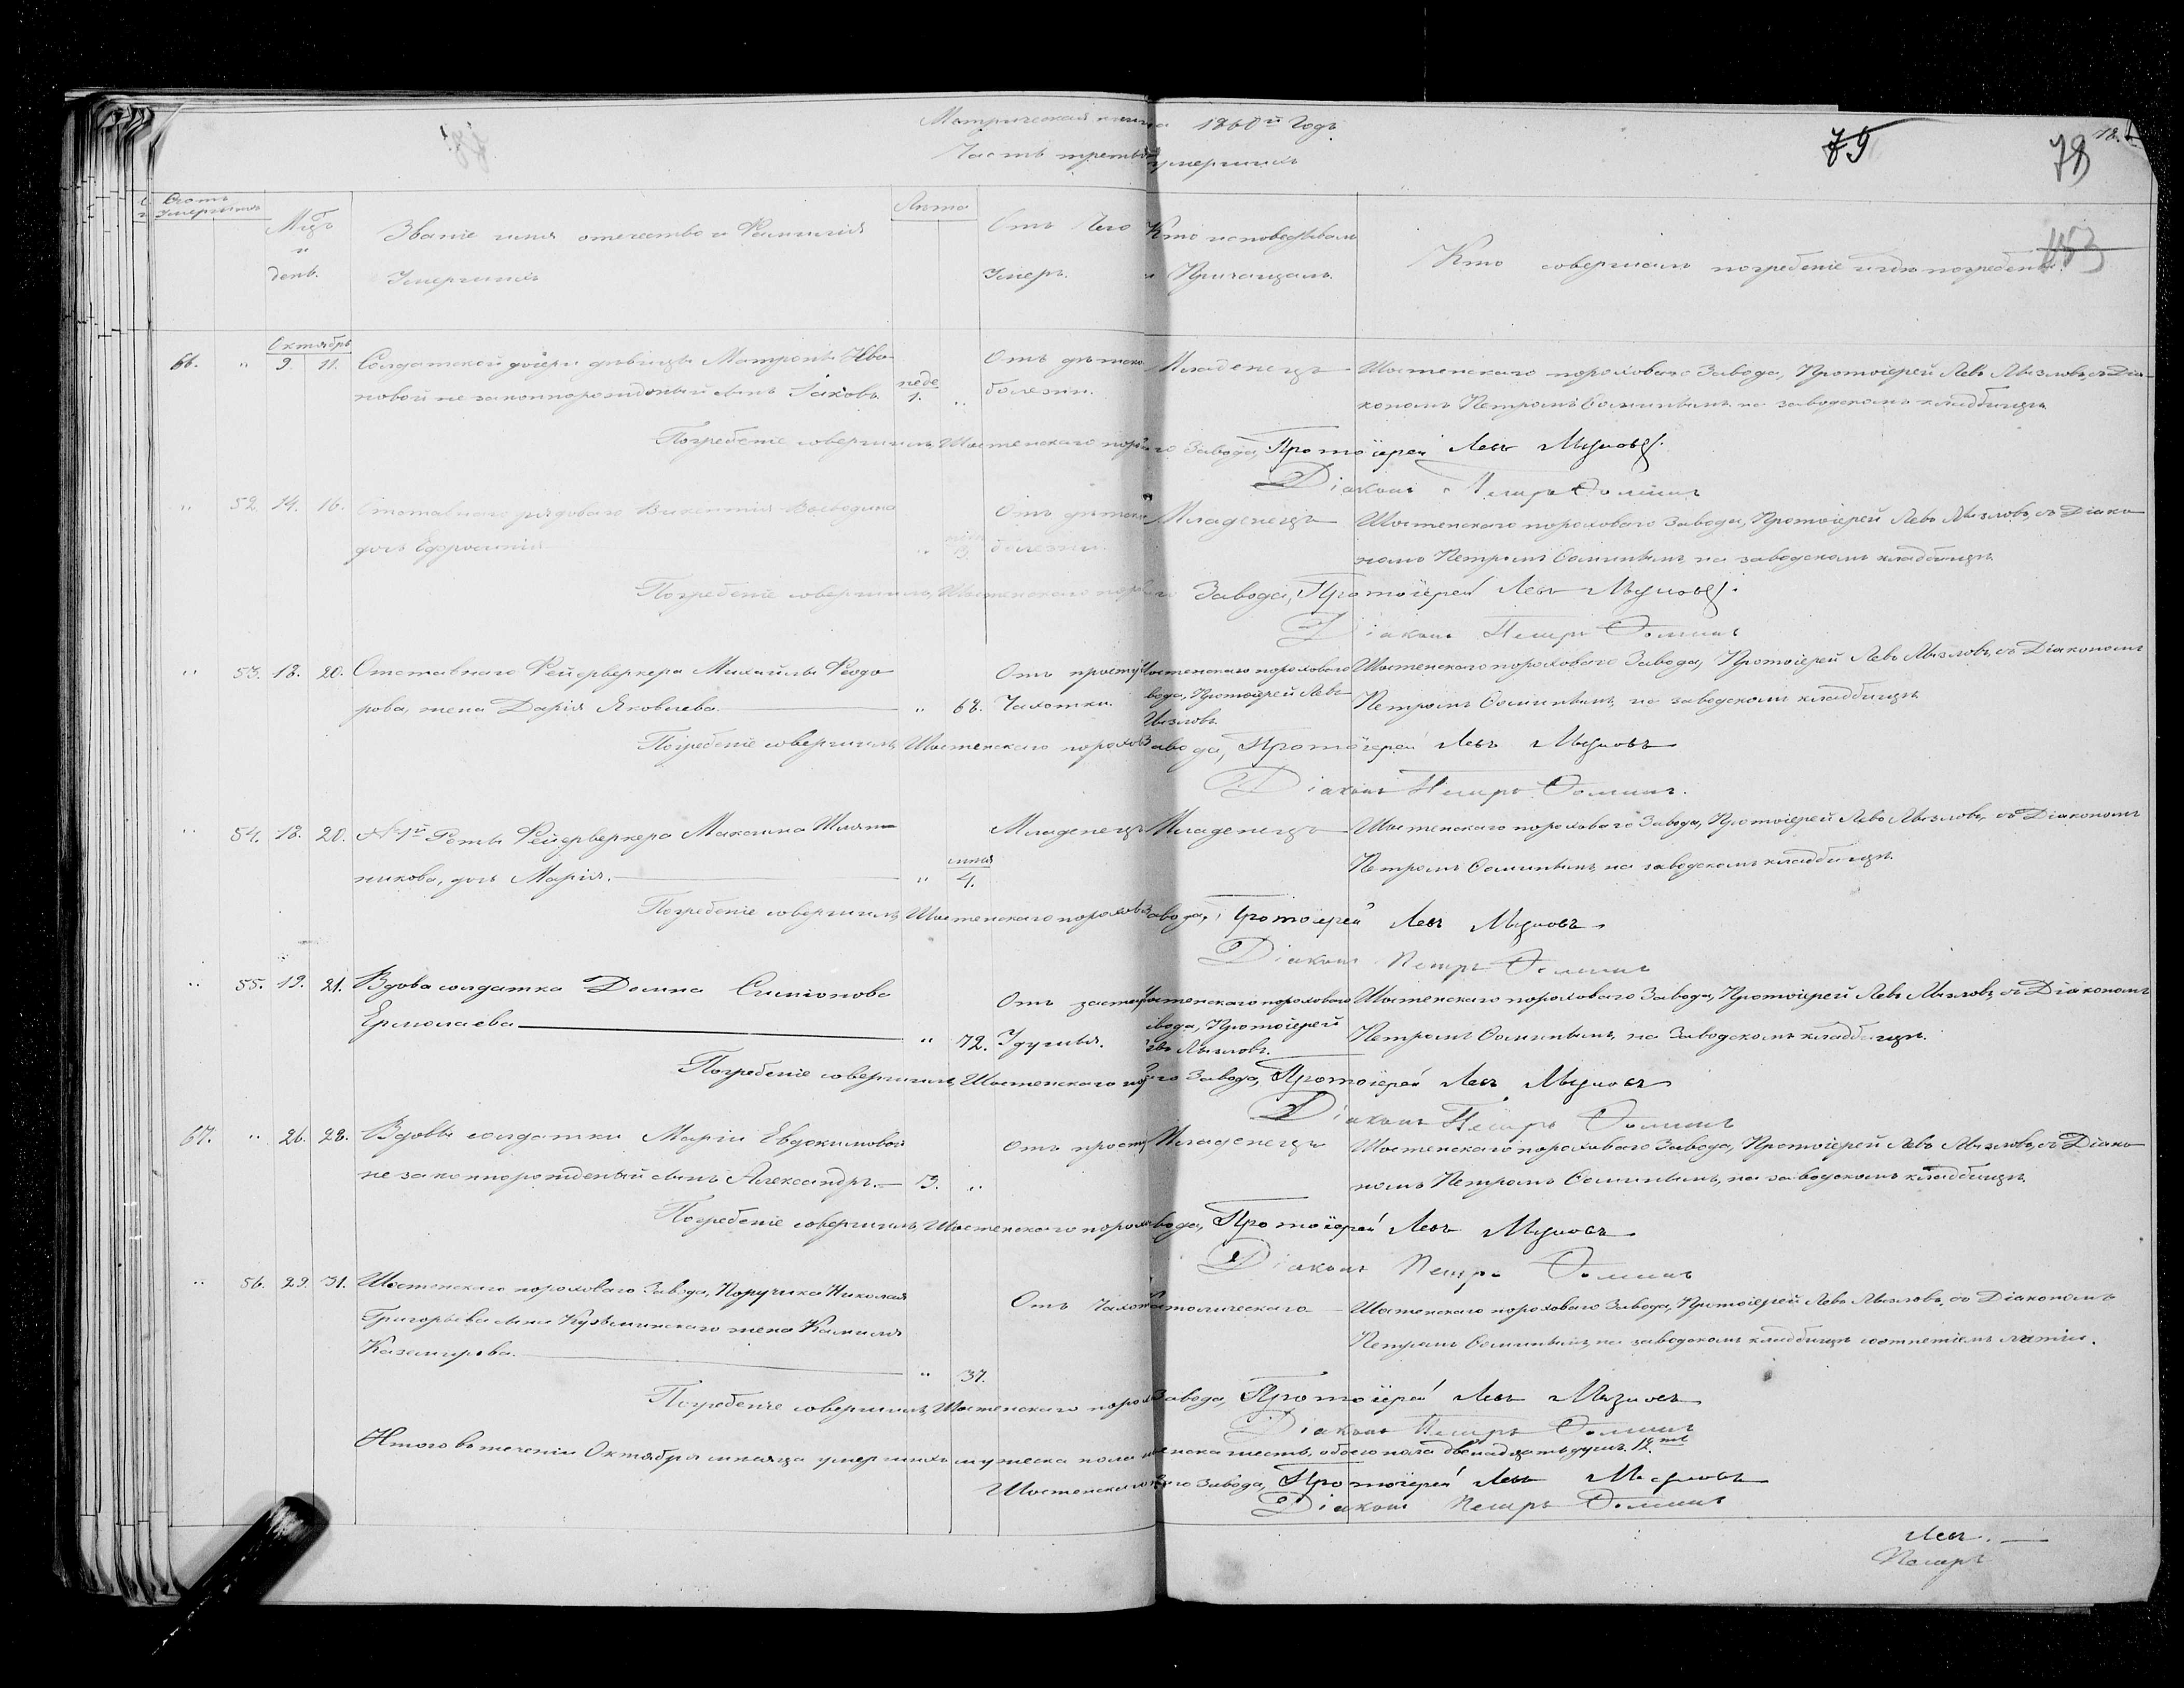 Метрическая книга 1860й Годъ
Часть третья умершихъ
79
78
153
Счетъ умершихъ
Мцъ и день.
Званіе имя отечество и Фамилія Умершихъ
Лѣта
Отъ Чего Умеръ.
Кто исповедывалъ и Причащалъ.
Кто совершалъ погребеніе и гдѣ погребены.
Октябрь
66. " 9. 11. Солдатской дочери дѣвицы Матроны Ива- Отъ дѣтско Младенецъ Шостенскаго пороховаго Завода, Протоіерей Левъ Мызловъ, съ Діа-
новой незаконнорожденый сынъ Іаковъ. неде 1. " болезни. кономъ Петромъ Ѳоминымъ на заводскомъ кладбищѣ
Погребеніе совершилъ, Шостенскаго порго Завода, Протоіерей Левъ Мызловъ.
Діаконъ Петръ Ѳоминъ
" 52. 14. 16. Отставнаго рядоваго Викентія Воеводина Отъ дѣтско Младенецъ Шостенскаго пороховаго Завода, Протоіерей Левъ Мызловъ, съ Діако
дочь Ефросинія " болезни. номъ Петромъ Ѳоминымъ, на заводскомъ кладбищѣ
Погребеніе совершилъ, Шостенскаго Завода, Протоіерей Левъ Мызловъ.
Діаконъ Петръ Ѳоминъ
" 53. 18. 20. Отставнаго Фейерверкера Михаила Ѳеодо Отъ просту Шостенскаго пороховаго Шостенскаго пороховаго Завода, Протоіерей Левъ Мызловъ, съ Діакономъ
рова, жена Дарія Яковлева. " 68. Чахотки. вода, Протоіерей Левъ Петромъ Ѳоминымъ, на заводскомъ кладбищѣ
Мызловъ.
Погребеніе совершилъ, Шостенскаго порохов Завода, Протоіерей Левъ Мызловъ
Діаконъ Петръ Ѳоминъ.
" 54. 18. 20. № 1й Роты Фейерверкера Максима Шлят Младенецъ Младенецъ Шостенскаго пороховаго Завода, Протоіерей Левъ Мызловъ, съ Діакономъ
никова, дочь Марія. " 4. Петромъ Ѳоминымъ, на заводскомъ кладбищѣ
Погребеніе совершилъ, Шостенскаго порохов Завода, Протоіерей Левъ Мызловъ.
Діаконъ Петръ Ѳоминъ
" 55. 19. 21. Вдова солдатка Домна Симіонова Отъ застар Шостенскаго пороховаго Шостенскаго пороховаго Завода, Протоіерей Левъ Мызловъ, съ Діакономъ
Ермолаева " 72. Удушья. вода, Протоіерей Петромъ Ѳоминымъ, на Заводскомъ кладбищѣ.
Мызловъ.
Погребеніе совершилъ, Шостенскаго го Завода, Протоіерей Левъ Мызловъ
Діаконъ Петръ Ѳоминъ
67. " 26. 28. Вдовы солдатки Маріи Евдокимовой Отъ просту Младенецъ Шостенскаго пороховаго Завода, Протоіерей Левъ Мызловъ, съ Діако
незаконнорожденый сынъ Александръ. 13. " номъ Петромъ Ѳоминымъ, на заводскомъ кладбищѣ
Погребеніе совершилъ, Шостенскаго порохо вода, Протоіерей Левъ Мызловъ
Діаконъ Петръ Ѳоминъ
" 56. 29. 31. Шостенскаго пороховаго Завода, Поручика Николая Отъ Чахот Католическаго Шостенскаго пороховаго Завода, Протоіерей Левъ Мызловъ, съ Діакономъ
Григорьева сына Кузьминскаго жена Камилія Петромъ Ѳоминымъ, на заводскомъ кладбищѣ
Каземирова. " 37.
Погребеніе совершилъ, Шостенскаго порох Завода, Протоіерей Левъ Мызловъ
Діаконъ Петръ Ѳоминъ
Итого въ теченіи Октября мѣсяца умершихъ мужеска пола женска шесть, обоего пола двенадцать душъ. 12.
Шостенскаго го Завода, Протоіерей Левъ Мызловъ
Діаконъ Петръ Ѳоминъ
Левъ.
Петръ